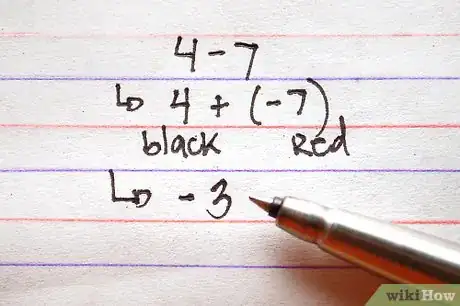 4 - 7
↳ 4 + (-7)
black red
↳ -3
wikiHow